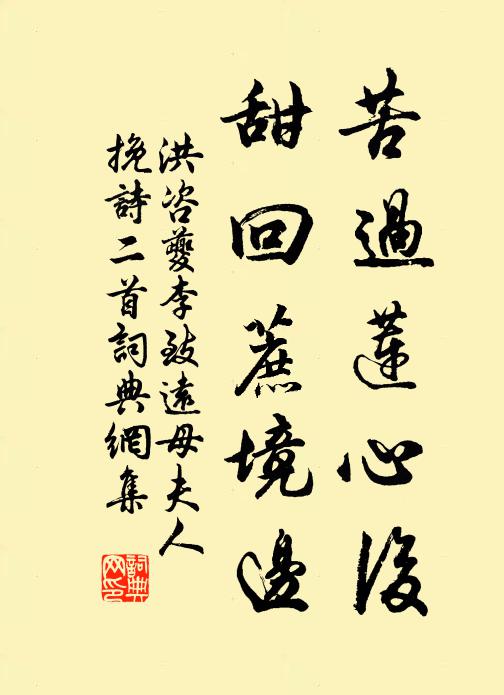 苦過蓮心後
甜回蔗境邊
洪咨夔李致遠母夫人
挽詩二首詞典網集
詞典
网印